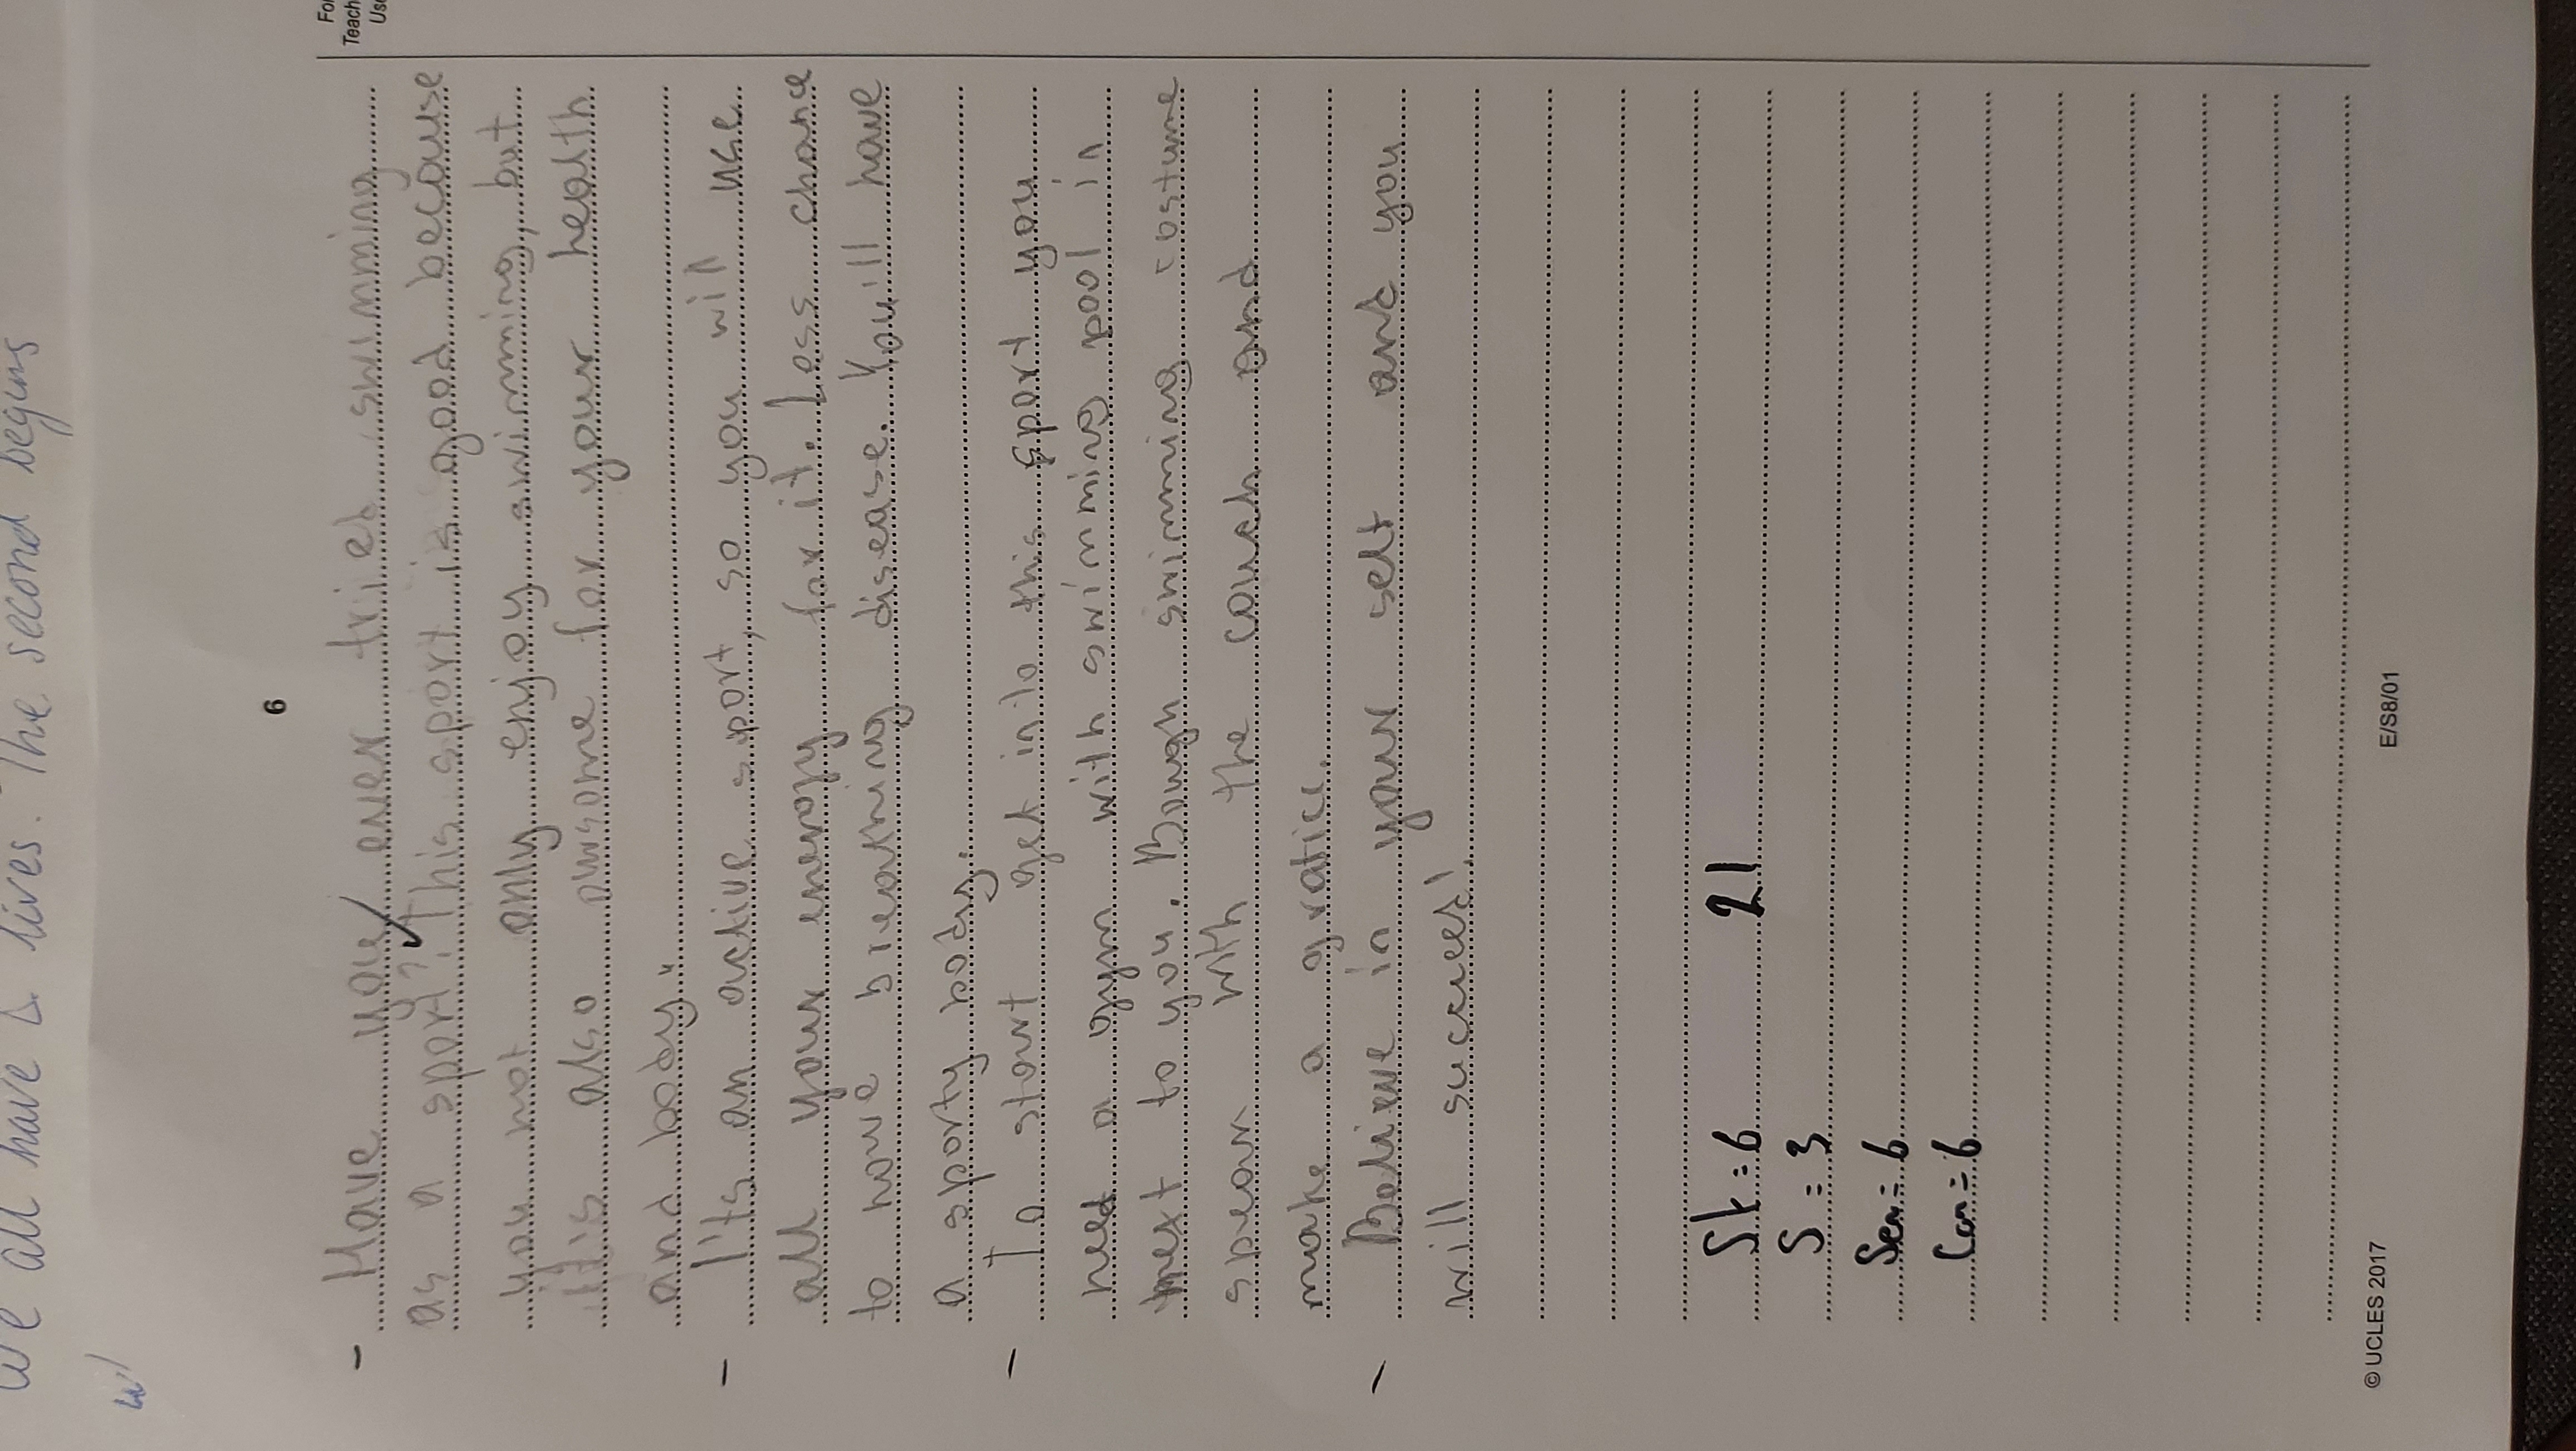 We all have 2 lives. The second begins
6
For
Teach
Use
Have you ever tried swimming
as a sport? This sport is good because
you not only enjoy swimming, but
it's also awsome for your health
and body.
I'ts an active sport, so you will use
all your energy for it. Less chance
to have breathing disease. You'll have
a sporty body.
To start get into this sport you
need a gym with swimming pool in
next to you. Bough swimming costume
with the couch and
make a
Believe in your self and you
will succeed!
St = 6 21
S = 3
Sen = 6
Con = 6
© UCLES 2017
E/S8/01